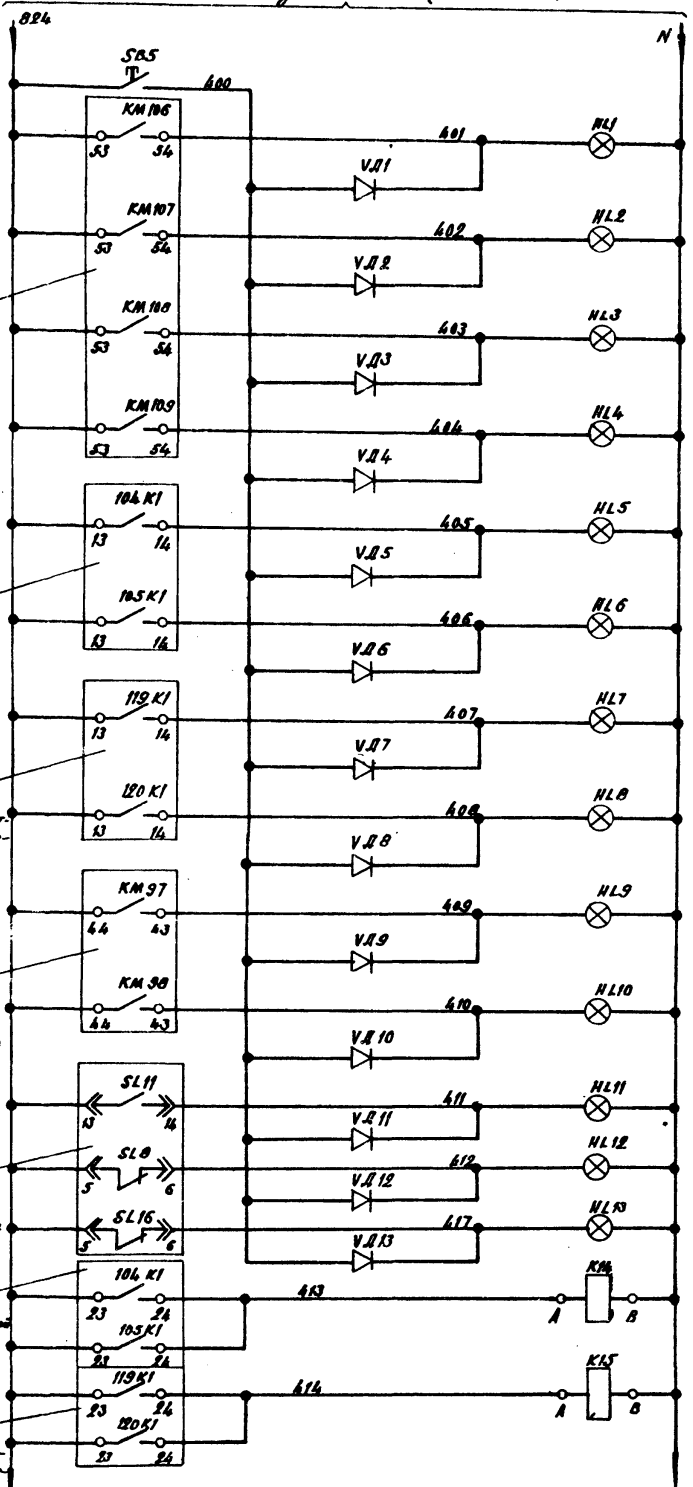 824
N
SB5
400
KM106
53 54
401
HL1
VД1
KM107
53 54
402
HL2
VД2
KM108
53 54
403
HL3
VД3
KM109
53 54
404
HL4
VД4
104K1
13 14
405
HL5
VД5
105K1
13 14
406
HL6
VД6
119K1
13 14
407
HL7
VД7
120K1
13 14
408
HL8
VД8
KM97
44 43
409
HL9
VД9
KM98
44 43
410
HL10
VД10
SL11
13 14
411
HL11
VД11
SL8
5 6
412
HL12
VД12
SL16
5 6
417
HL13
VД13
104K1
23 24
413
K14
A B
105K1
23 24
119K1
23 24
414
K15
A B
120K1
23 24